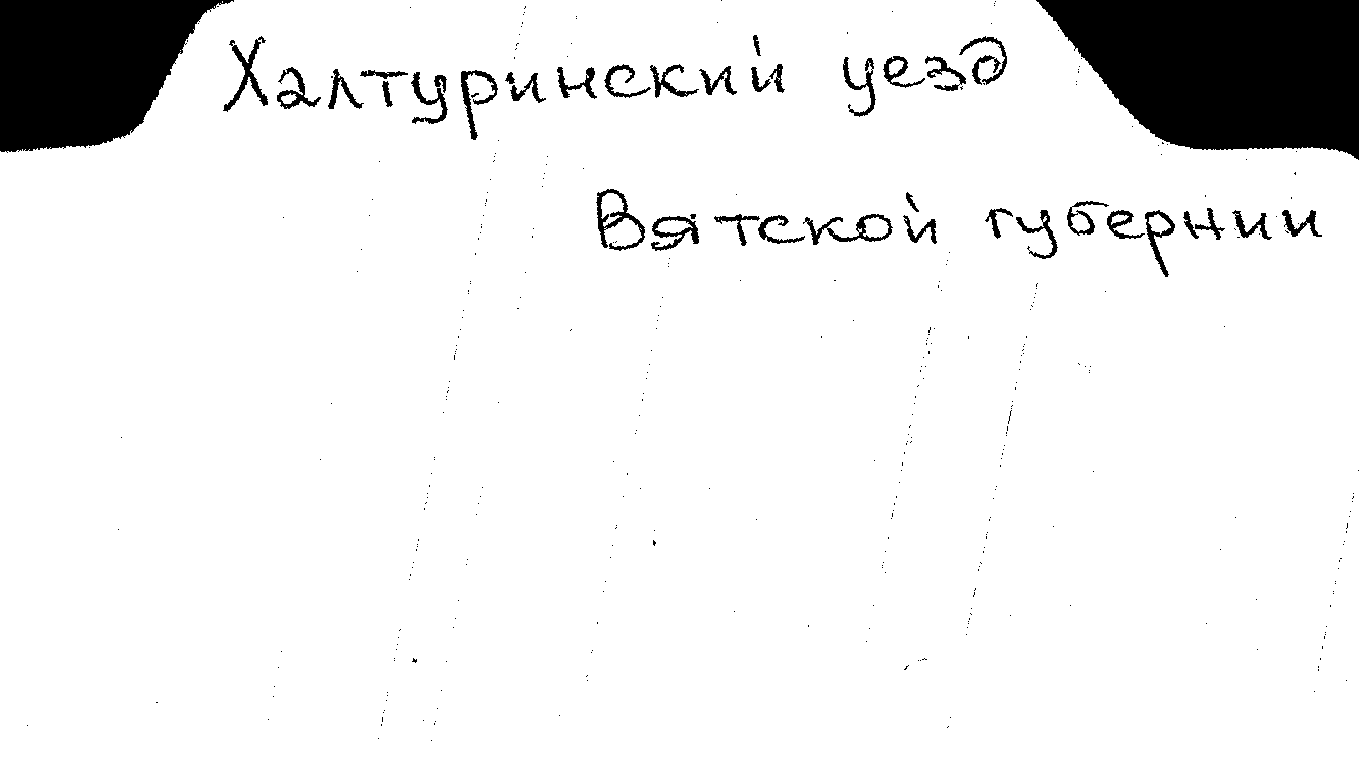 Халтуринский уезд
Вятской губернии